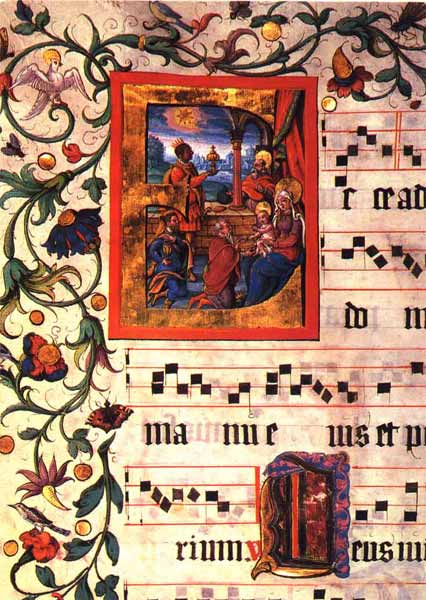 Ecce ad
do m
manu eius et p
rium v Deus iu